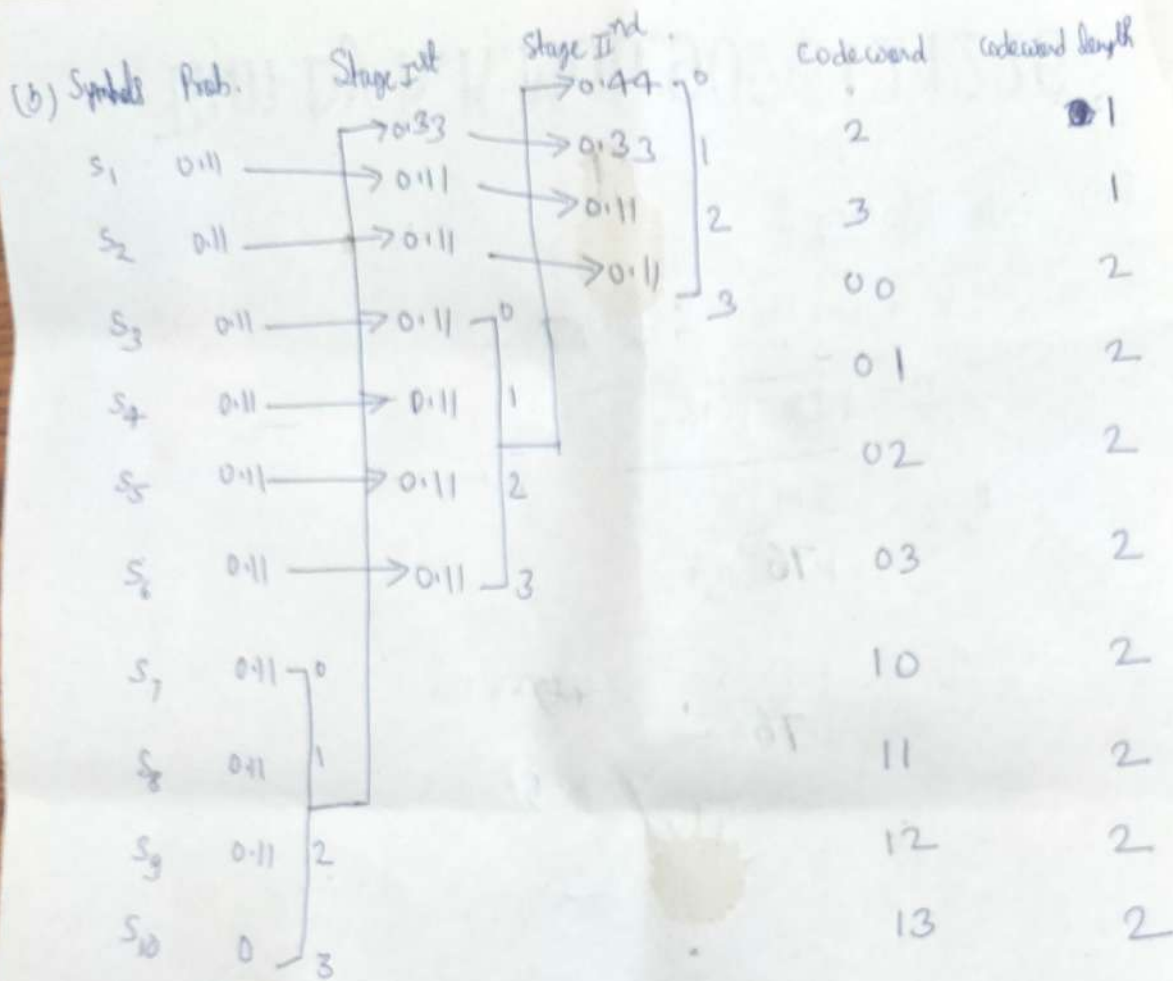 (b) Symbols Prob. Stage Ist Stage IInd. Codeword Codeword length
0.44 0
0.33 0.33 1 2 1
S1 0.11 0.11 0.11 2
S2 0.11 0.11 0.11 3 3 1
S3 0.11 0.11 0 00 2
S4 0.11 0.11 1 01 2
S5 0.11 0.11 2 02 2
S6 0.11 0.11 3 03 2
S7 0.11 0 10 2
S8 0.11 1 11 2
S9 0.11 2 12 2
S10 0 3 13 2